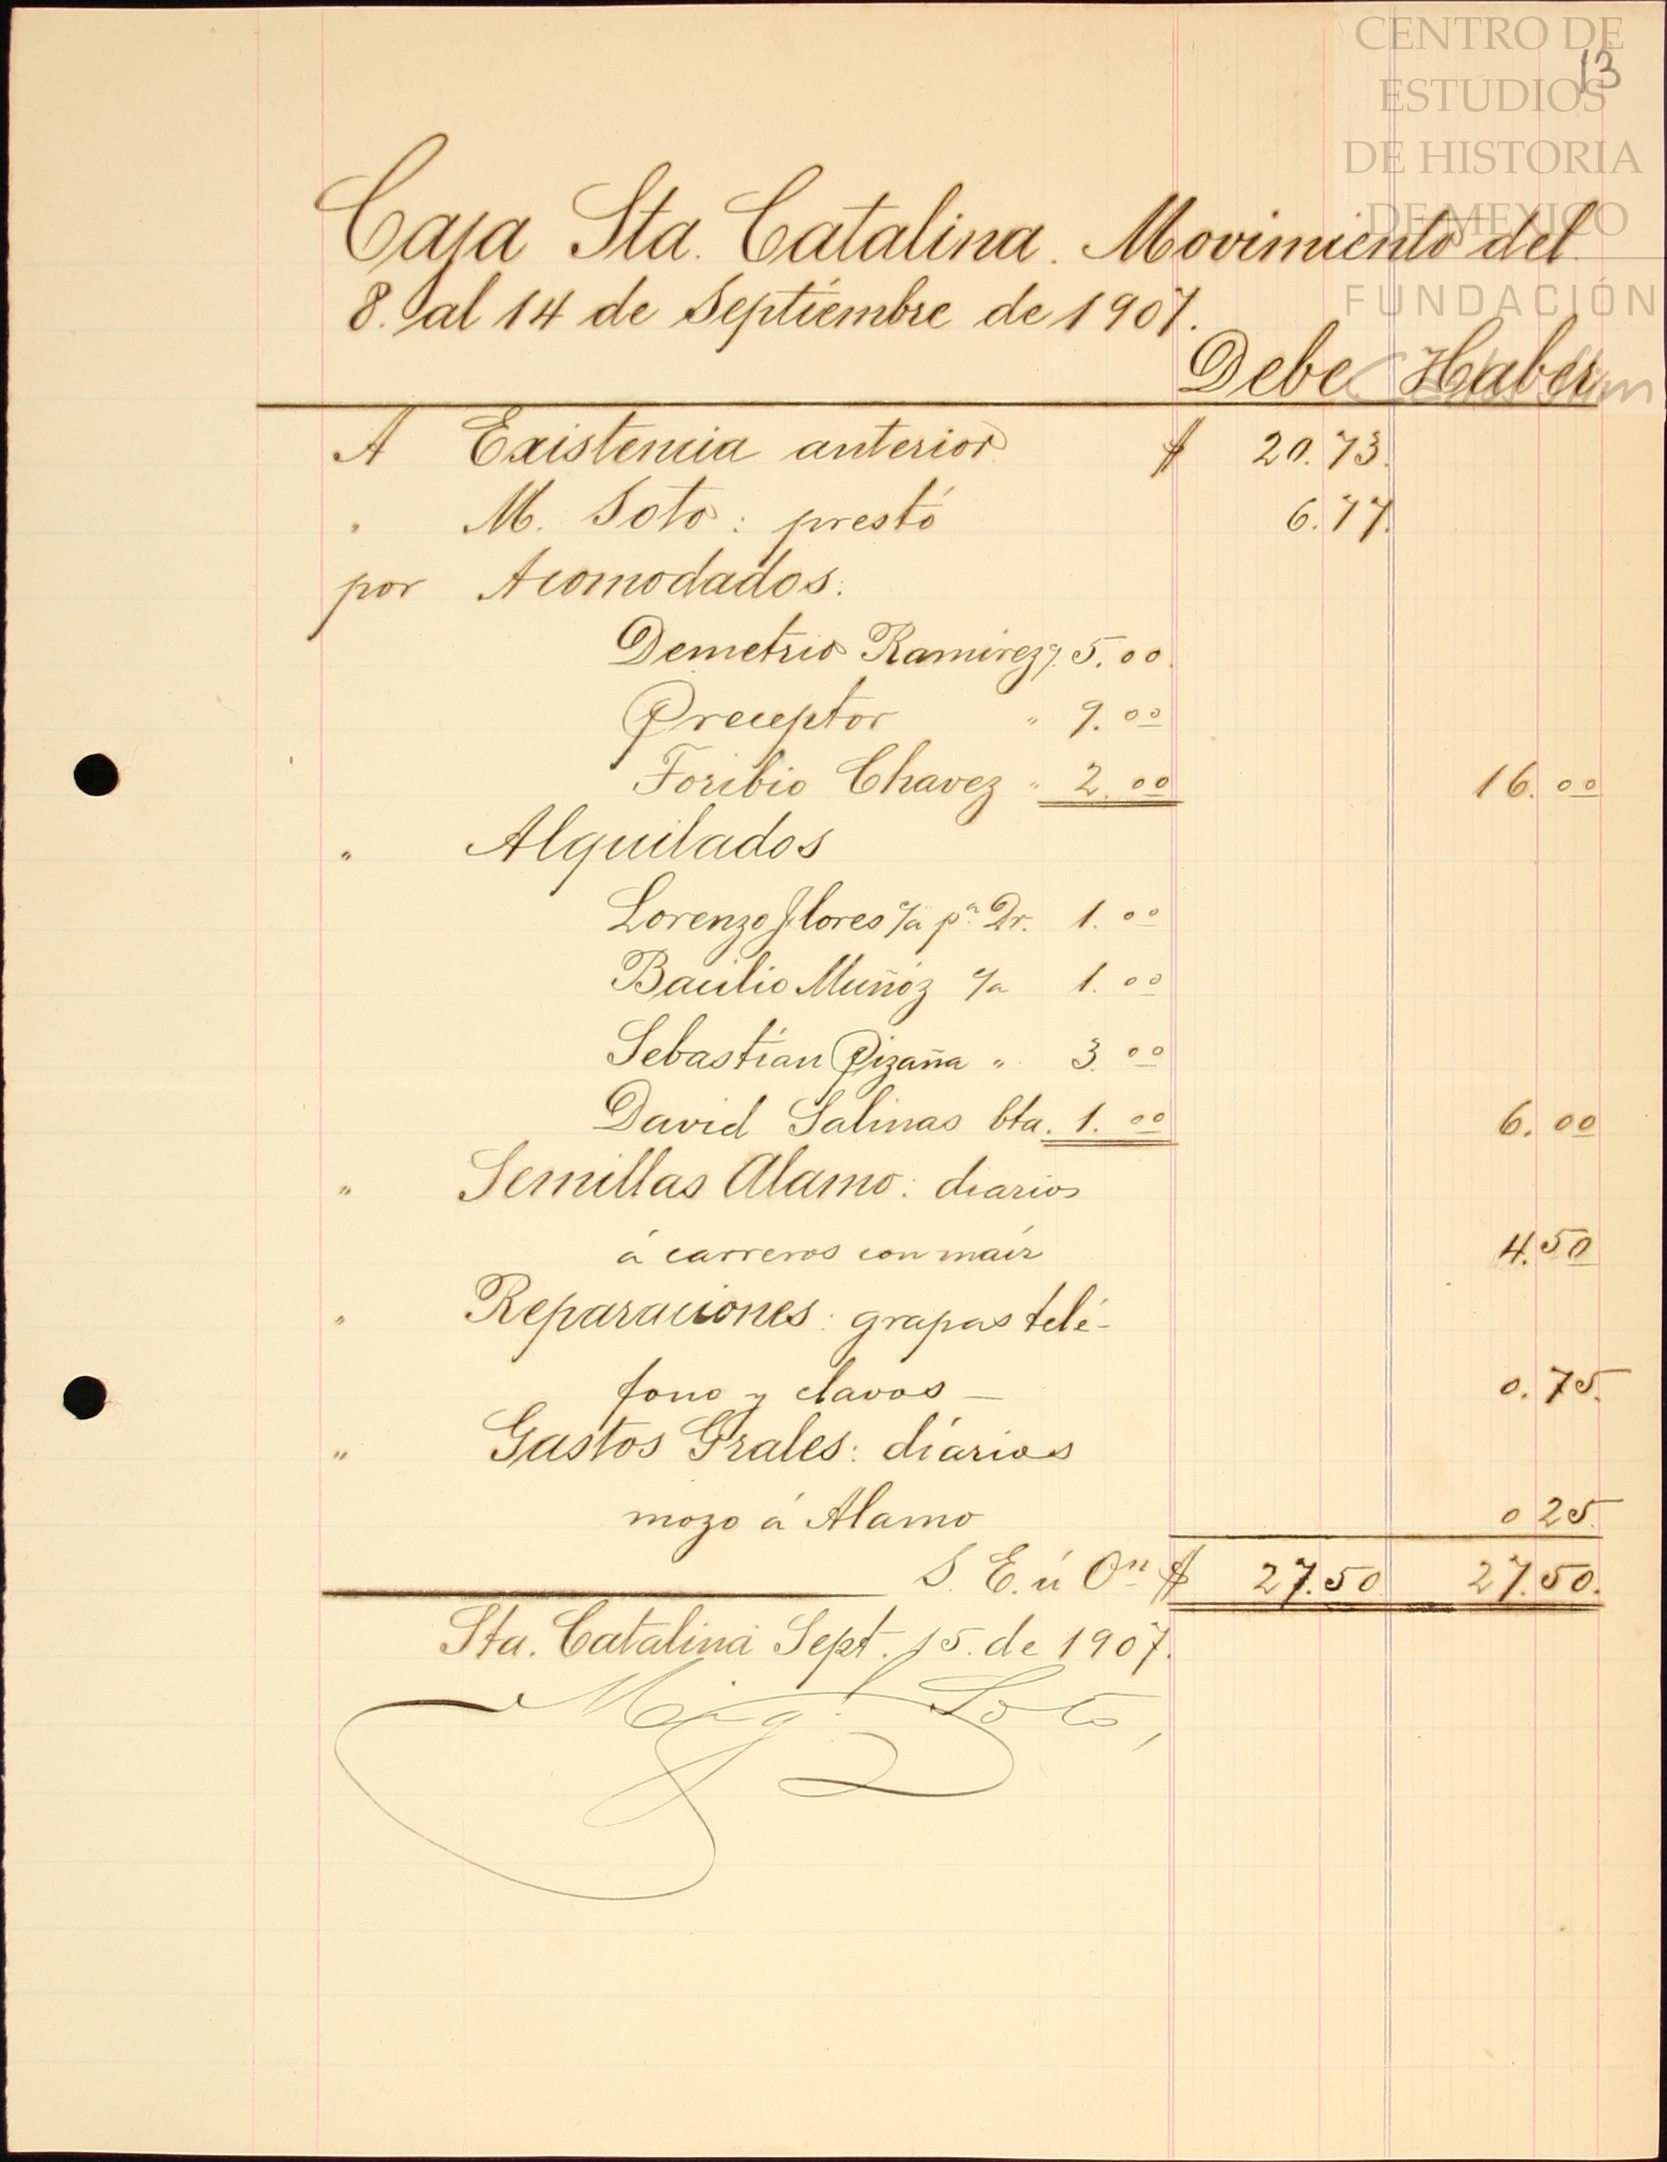 CENTRO DE
ESTUDIOS
DE HISTORIA
DE MEXICO
FUNDACIÓN
13
Caja Sta. Catalina. Movimiento del
8. al 14 de Septiembre de 1907.
Debe Haber
A Existencia anterior $ 20.73.
" M. Soto: prestó 6.77.
por Acomodados:
Demetrio Ramirez $. 5.00.
Preceptor " 9.00
Toribio Chavez " 2.00 16.00
" Alquilados
Lorenzo Flores c/a pa. Dr. 1.00
Bacilio Muñoz c/a 1.00
Sebastian Pizaña " 3.00
David Salinas bta. 1.00 6.00
" Semillas Alamo: diarios
á carreros con maiz 4.50
" Reparaciones: grapas telé-
fono y clavos — 0.75.
" Gastos Grales: diarios
mozo á Alamo 0 25.
S. E. ú On $ 27.50 27.50.
Sta. Catalina Sept. 15. de 1907.
Migl. Soto,